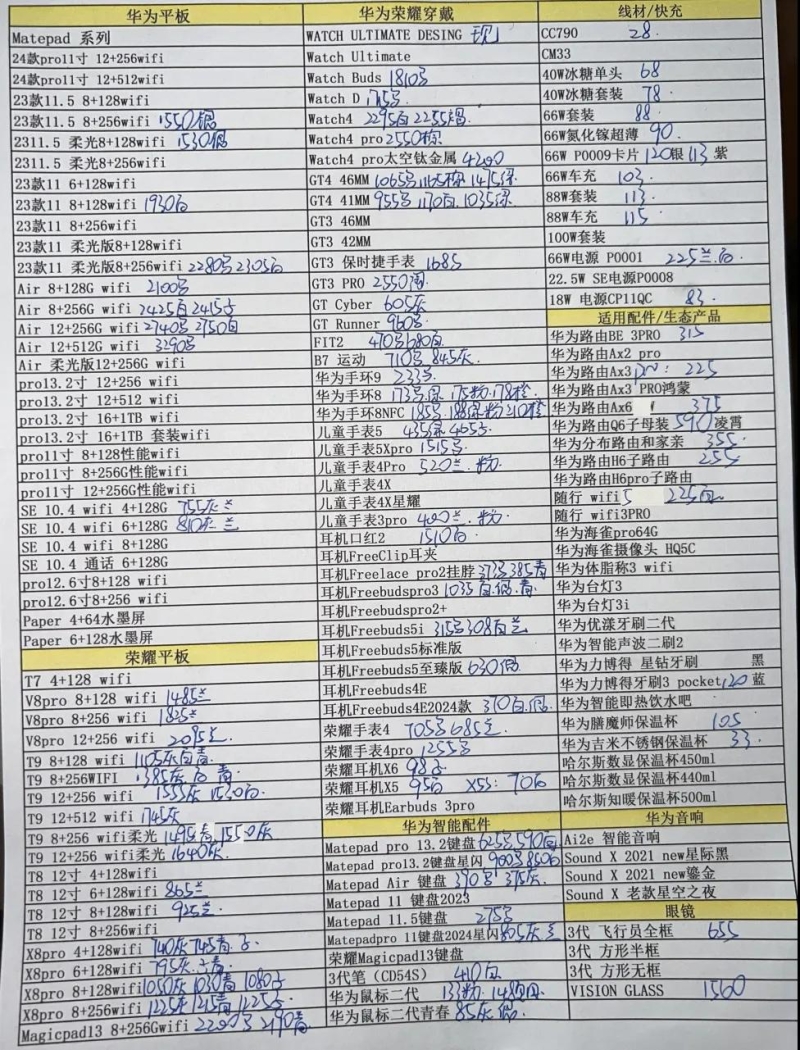 华为平板
Matepad 系列
24款pro11寸 12+256wifi
24款pro11寸 12+512wifi
23款11.5 8+128wifi
23款11.5 8+256wifi 1550银
2311.5 柔光8+128wifi 1530银
2311.5 柔光8+256wifi
23款11 6+128wifi
23款11 8+128wifi 1930白
23款11 8+256wifi
23款11 柔光版8+128wifi
23款11 柔光版8+256wifi 2280 2305白
Air 8+128G wifi 2100
Air 8+256G wifi 2425白 2415
Air 12+256G wifi 2740 2750白
Air 12+512G wifi 3290
Air 柔光版12+256G wifi
pro13.2寸 12+256 wifi
pro13.2寸 12+512 wifi
pro13.2寸 16+1TB wifi
pro13.2寸 16+1TB 套装wifi
pro11寸 8+128性能wifi
pro11寸 8+256G性能wifi
pro11寸 12+256G性能wifi
SE 10.4 wifi 4+128G 755灰兰
SE 10.4 wifi 6+128G 810灰 兰
SE 10.4 wifi 8+128G
SE 10.4 通话 6+128G
pro12.6寸8+128 wifi
pro12.6寸8+256 wifi
Paper 4+64水墨屏
Paper 6+128水墨屏
荣耀平板
T7 4+128 wifi
V8pro 8+128 wifi 1485兰
V8pro 8+256 wifi 1825兰
V8pro 12+256 wifi 2095兰
T9 8+128 wifi 1105灰白青
T9 8+256WIFI 1385灰 白 青
T9 12+256 wifi 1555灰 1530白
T9 12+512 wifi 1745灰
T9 8+256 wifi柔光 1495青 1550灰
T9 12+256 wifi柔光 1640灰
T8 12寸 4+128wifi
T8 12寸 6+128wifi 865兰
T8 12寸 8+128wifi 925兰
T8 12寸 8+256wifi
X8pro 4+128wifi 740灰 745青
X8pro 6+128wifi 795灰 青
X8pro 8+128wifi 1050灰 1030青 1080
X8pro 8+256wifi 1225灰 1215青 1225
Magicpad13 8+256Gwifi 2200 2190青
华为荣耀穿戴
WATCH ULTIMATE DESING
Watch Ultimate
Watch Buds 1810
Watch D 1715
Watch4 2295白 2255
Watch4 pro 2550棕
Watch4 pro太空钛金属 4200
GT4 46MM 1065 1165棕 1475绿
GT4 41MM 955 1170白 1035绿
GT3 46MM
GT3 42MM
GT3 保时捷手表 1685
GT3 PRO 2550
GT Cyber 605灰
GT Runner 960
FIT2 470 680白
B7 运动 710 845灰
华为手环9 233
华为手环8 173 绿 175粉 178橙
华为手环8NFC 185 188绿粉 210橙
儿童手表5 435绿 465
儿童手表5Xpro 1515
儿童手表4Pro 520兰 粉
儿童手表4X
儿童手表4X星耀
儿童手表3pro 400兰 粉
耳机口红2 1510白
耳机FreeClip耳夹
耳机Freelace pro2挂脖 373 385青
耳机Freebudspro3 1035 白.银.青
耳机Freebudspro2+
耳机Freebuds5i 315 308白兰
耳机Freebuds5标准版
耳机Freebuds5至臻版 630银
耳机Freebuds4E
耳机Freebuds4E2024款 370白.银
荣耀手表4 705 685兰
荣耀手表4pro 1255
荣耀耳机X6 98
荣耀耳机X5 95白 X5S: 70白
荣耀耳机Earbuds 3pro
华为智能配件
Matepad pro 13.2键盘 625 590白
Matepad pro13.2键盘星闪 900 850白
Matepad Air 键盘 390 375灰
Matepad 11 键盘2023
Matepad 11.5键盘 275
Matepadpro 11键盘2024星闪 805灰 兰
荣耀Magicpad13键盘
3代笔（CD54S） 410白
华为鼠标二代 133粉 148白
华为鼠标二代青春 85灰 银
线材/快充
CC790 28
CM33
40W冰糖单头 68
40W冰糖套装 78
66W套装 88
66W氮化镓超薄 90
66W P0009卡片 120银 113 紫
66W车充 103
88W套装 113
88W车充 115
100W套装
66W电源 P0001 225兰.白
22.5W SE电源P0008
18W 电源CP11QC 83
适用配件/生态产品
华为路由BE 3PRO 315
华为路由Ax2 pro
华为路由Ax3 pro: 225
华为路由Ax3 PRO鸿蒙
华为路由Ax6 375
华为路由Q6子母装 590 凌霄
华为分布路由和家亲 355
华为路由H6子路由 255
华为路由H6pro子路由
随行 wifi5 225白
随行 wifi3PRO
华为海雀pro64G
华为海雀摄像头 HQ5C
华为体脂称3 wifi
华为台灯3
华为台灯3i
华为优漾牙刷二代
华为智能声波二刷2
华为力博得 星钻牙刷 黑
华为力博得牙刷3 pocket 120 蓝
华为智能即热饮水吧
华为膳魔师保温杯 105
华为吉米不锈钢保温杯 33
哈尔斯数显保温杯450ml
哈尔斯数显保温杯440ml
哈尔斯知暖保温杯500ml
华为音响
Ai2e 智能音响
Sound X 2021 new星际黑
Sound X 2021 new鎏金
Sound X 老款星空之夜
眼镜
3代 飞行员全框 655
3代 方形半框
3代 方形无框
VISION GLASS 1560